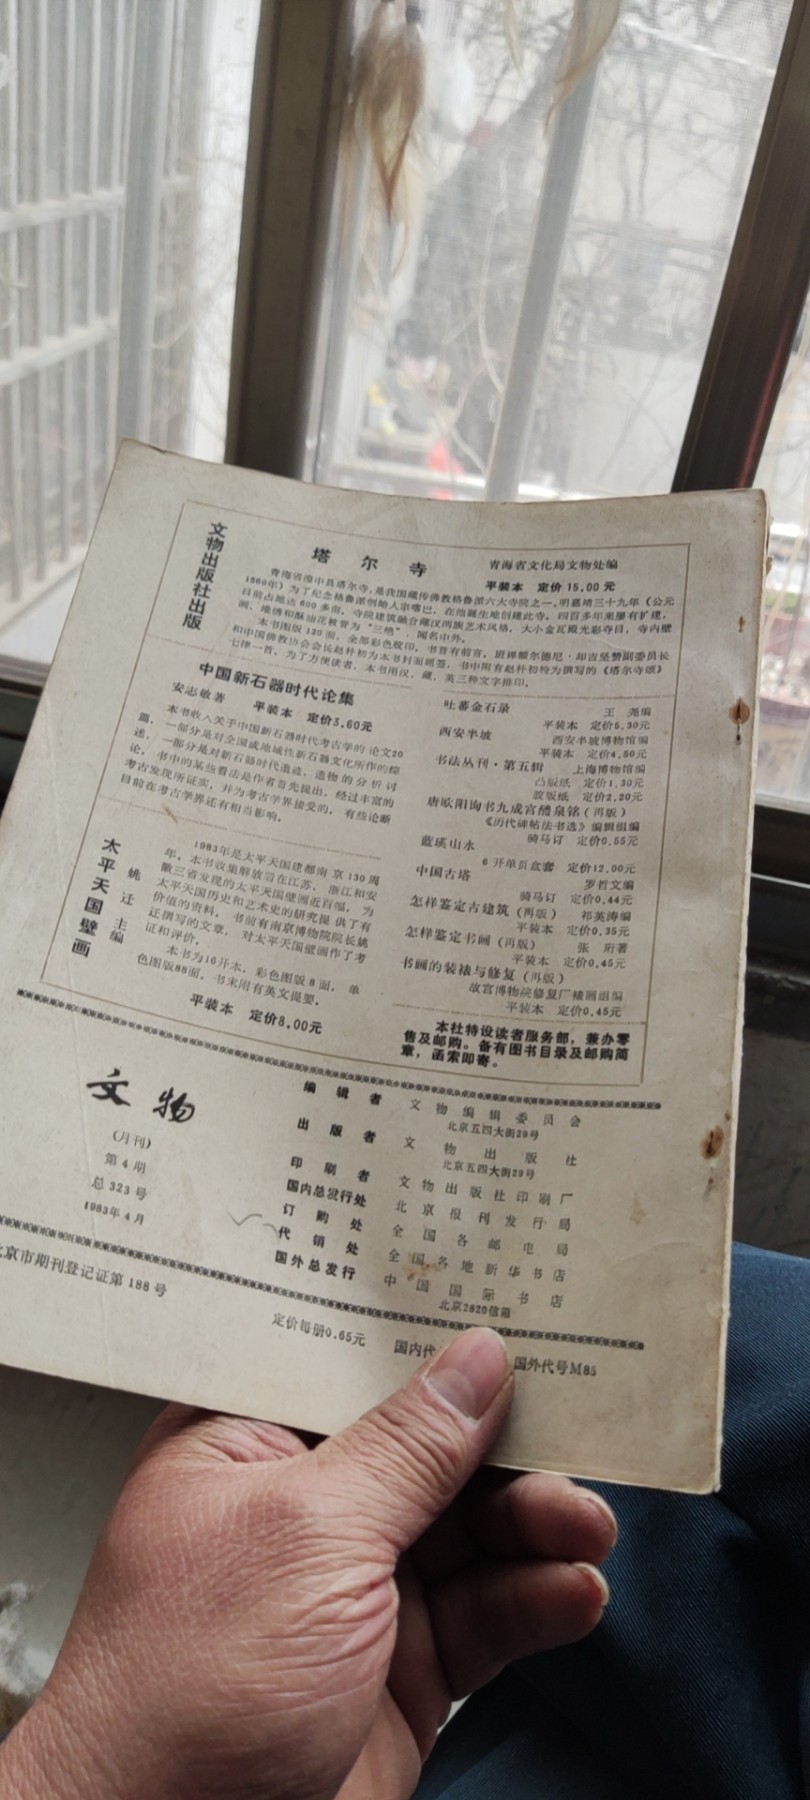 文物出版社出版
塔尔寺
青海省文化局文物处编
平装本 定价15.00元
青海省湟中县塔尔寺，是我国藏传佛教格鲁派六大寺院之一。明嘉靖三十九年（公元
1560年）为了纪念格鲁派创始人宗喀巴，在他诞生地创建此寺。四百多年来屡有扩建，
目前占地达600多亩。寺院建筑融合藏汉两族艺术风格，大小金瓦殿光彩夺目，寺内壁
画、堆绣和酥油花被誉为“三绝”，闻名中外。
本书图版120面，全部彩色胶印，书首有前言。班禅额尔德尼·却吉坚赞副委员长
和中国佛教协会会长赵朴初为本书封面题签，书中附有赵朴初特为撰写的《塔尔寺颂》
七律一首。为了方便读者，本书用汉、藏、英三种文字排印。
中国新石器时代论集
安志敏著 平装本 定价3.60元
本书收入关于中国新石器时代考古学的论文20
篇，一部分是对全国或地域性新石器文化所作的综
述，一部分是对新石器时代遗迹、遗物的分析讨
论，书中的某些看法是作者首先提出，经过丰富的
考古发现所证实，并为考古学界接受的，有些论断
目前在考古学界还有相当影响。
太平天国壁画
姚迁 主编
1983年是太平天国建都南京130周
年。本书收集解放后在江苏、浙江和安
徽三省发现的太平天国壁画近百幅，为
太平天国历史和艺术史的研究提供了有
价值的资料。书前有南京博物院院长姚
迁撰写的文章，对太平天国壁画作了考
证和评价。
本书为16开本，彩色图版8面，单
色图版88面。书末附有英文提要。
平装本 定价8.00元
吐蕃金石录 王尧编
平装本 定价5.30元
西安半坡 西安半坡博物馆编
平装本 定价4.50元
书法丛刊·第五辑 上海博物馆编
凸版纸 定价1.30元
胶版纸 定价2.20元
唐欧阳询书九成宫醴泉铭（再版）
《历代碑帖法书选》编辑组编
骑马订 定价0.55元
蓝瑛山水
6开单页盒套 定价12.00元
中国古塔 罗哲文编
骑马订 定价0.44元
怎样鉴定古建筑（再版） 祁英涛编
平装本 定价0.35元
怎样鉴定书画（再版） 张珩著
平装本 定价0.45元
书画的装裱与修复（再版）
故宫博物院修复厂裱画组编
平装本 定价0.45元
本社特设读者服务部，兼办零
售及邮购。备有图书目录及邮购简
章，函索即寄。
文物
（月刊）
第4期
总323号
1983年4月
编辑者 文物编辑委员会
北京五四大街29号
出版者 文物出版社
北京五四大街29号
印刷者 文物出版社印刷厂
国内总发行处 北京报刊发行局
订购处 全国各邮电局
代销处 全国各地新华书店
国外总发行 中国国际书店
北京2820信箱
北京市期刊登记证第188号
定价每册0.65元 国内代 国外代号M85